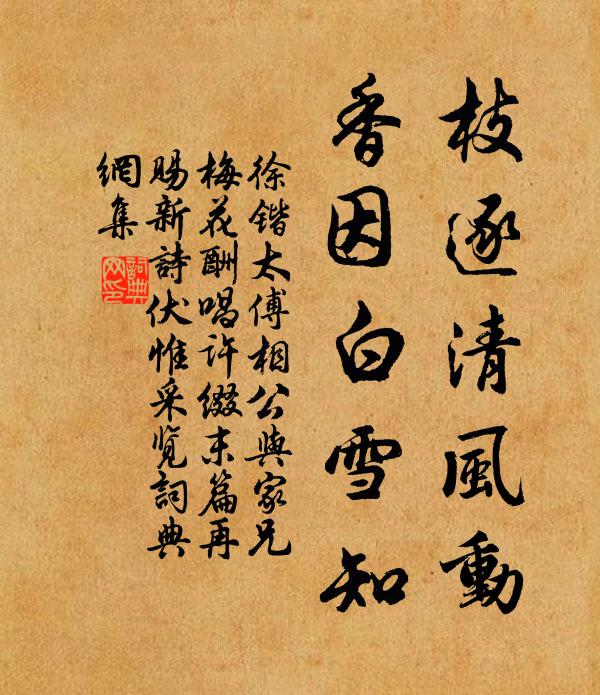 枝逐清風動
香因白雪知
徐鍇太傅相公與家兄
梅花酬唱許綴末篇再
賜新詩伏惟采覽詞典
網集
詞典網印